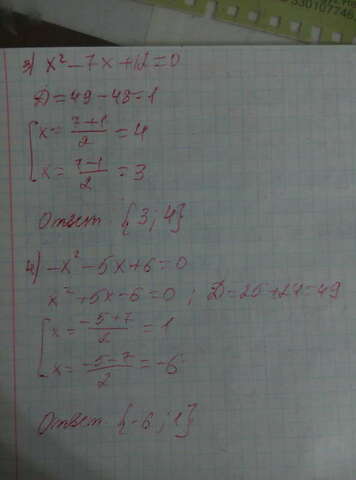 530107748
3) x² - 7x + 12 = 0
D = 49 - 48 = 1
[x = (7+1)/2 = 4
[x = (7-1)/2 = 3
Ответ {3; 4}
4) -x² - 5x + 6 = 0
x² + 5x - 6 = 0 ; D = 25 + 24 = 49
[x = (-5+7)/2 = 1
[x = (-5-7)/2 = -6
Ответ {-6; 1}